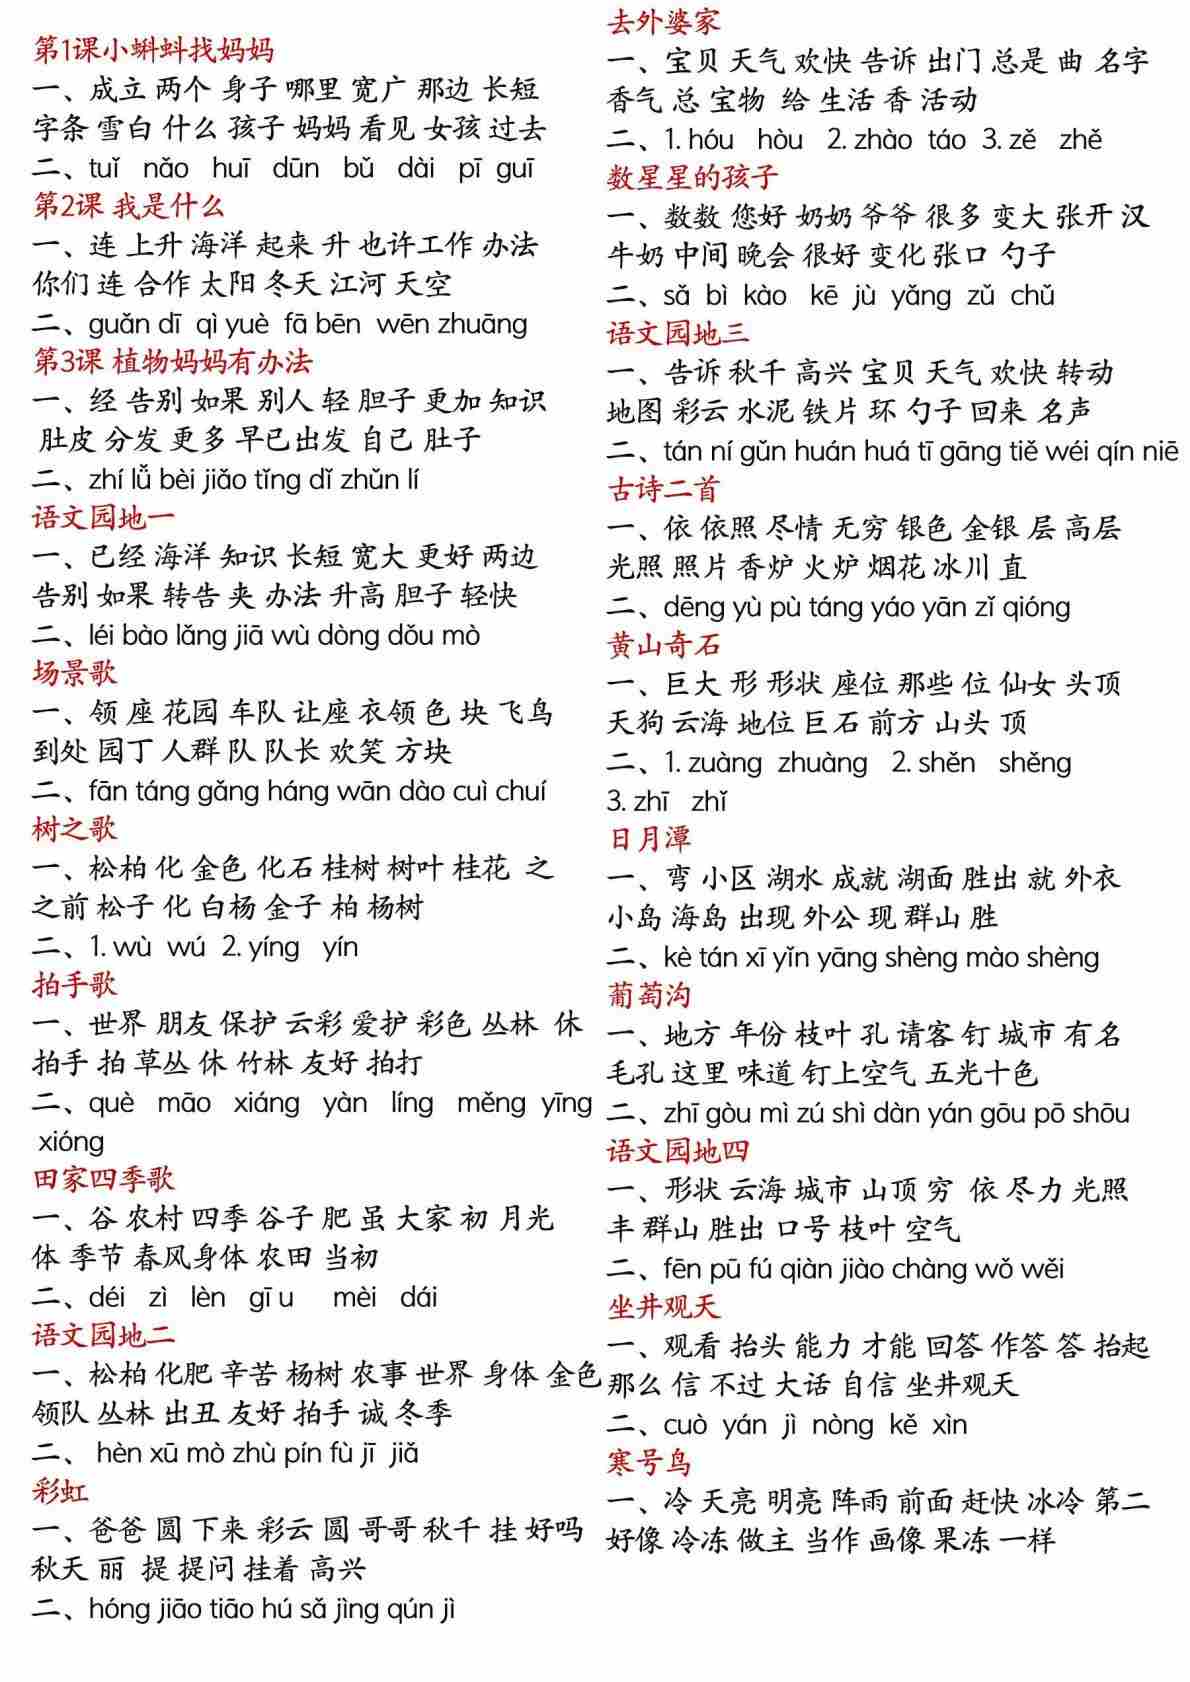 第1课小蝌蚪找妈妈
一、成立 两个 身子 哪里 宽广 那边 长短
字条 雪白 什么 孩子 妈妈 看见 女孩 过去
二、tuǐ nǎo huī dūn bǔ dài pī guī
第2课 我是什么
一、连 上升 海洋 起来 升 也许工作 办法
你们 连 合作 太阳 冬天 江河 天空
二、guǎn dī qì yuè fā bēn wēn zhuāng
第3课 植物妈妈有办法
一、经 告别 如果 别人 轻 胆子 更加 知识
肚皮 分发 更多 早已 出发 自己 肚子
二、zhí lǚ bèi jiǎo tǐng dǐ zhǔn lí
语文园地一
一、已经 海洋 知识 长短 宽大 更好 两边
告别 如果 转告 夹 办法 升高 胆子 轻快
二、léi bào lǎng jiā wù dòng dǒu mò
场景歌
一、领 座 花园 车队 让座 衣领 色 块 飞鸟
到处 园丁 人群 队 队长 欢笑 方块
二、fān táng gǎng háng wān dào cuì chuí
树之歌
一、松柏 化 金色 化石 桂树 树叶 桂花 之
之前 松子 化 白杨 金子 柏 杨树
二、1. wù wú 2. yíng yín
拍手歌
一、世界 朋友 保护 云彩 爱护 彩色 丛林 休
拍手 拍 草丛 休 竹林 友好 拍打
二、què māo xiáng yàn líng měng yīng
xióng
田家四季歌
一、谷 农村 四季 谷子 肥 虽 大家 初 月光
体 季节 春风身体 农田 当初
二、déi zì lèn gī u mèi dái
语文园地二
一、松柏 化肥 辛苦 杨树 农事 世界 身体 金色
领队 丛林 出丑 友好 拍手 诚 冬季
二、hèn xū mò zhù pín fù jī jiǎ
彩虹
一、爸爸 圆 下来 彩云 圆 哥哥 秋千 挂 好吗
秋天 丽 提 提问 挂着 高兴
二、hóng jiāo tiāo hú sǎ jìng qún jì
去外婆家
一、宝贝 天气 欢快 告诉 出门 总是 曲 名字
香气 总 宝物 给 生活 香 活动
二、1. hóu hòu 2. zhào táo 3. zě zhě
数星星的孩子
一、数数 您好 奶奶 爷爷 很多 变大 张开 汉
牛奶 中间 晚会 很好 变化 张口 勺子
二、sǎ bì kào kē jù yǎng zǔ chǔ
语文园地三
一、告诉 秋千 高兴 宝贝 天气 欢快 转动
地图 彩云 水泥 铁片 环 勺子 回来 名声
二、tán ní gǔn huán huá tī gāng tiě wéi qín niē
古诗二首
一、依 依照 尽情 无穷 银色 金银 层 高层
光照 照片 香炉 火炉 烟花 冰川 直
二、dēng yù pù táng yáo yān zǐ qióng
黄山奇石
一、巨大 形 形状 座位 那些 位 仙女 头顶
天狗 云海 地位 巨石 前方 山头 顶
二、1. zuàng zhuàng 2. shěn shěng
3. zhī zhǐ
日月潭
一、弯 小区 湖水 成就 湖面 胜出 就 外衣
小岛 海岛 出现 外公 现 群山 胜
二、kè tán xī yǐn yāng shèng mào shèng
葡萄沟
一、地方 年份 枝叶 孔 请客 钉 城市 有名
毛孔 这里 味道 钉上空气 五光十色
二、zhī gòu mì zú shì dàn yán gōu pō shōu
语文园地四
一、形状 云海 城市 山顶 穷 依 尽力 光照
丰 群山 胜出 口号 枝叶 空气
二、fēn pū fú qiàn jiào chàng wǒ wěi
坐井观天
一、观看 抬头 能力 才能 回答 作答 答 抬起
那么 信 不过 大话 自信 坐井观天
二、cuò yán jì nòng kě xìn
寒号鸟
一、冷 天亮 明亮 阵雨 前面 赶快 冰冷 第二
好像 冷冻 做主 当作 画像 果冻 一样